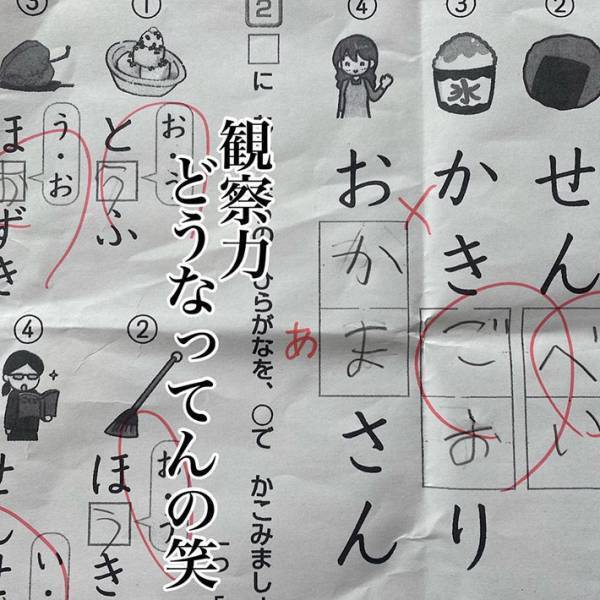 ②
せんべい
③
氷
かきごおり
④
おかまさん
あ
2
□に
ひらがなを、○で かこみまし
観察力
どうなってんの笑
①
お・う
とうふ
③
う・お
ほおずき
②
お・う
ほうき
④
い・
せ